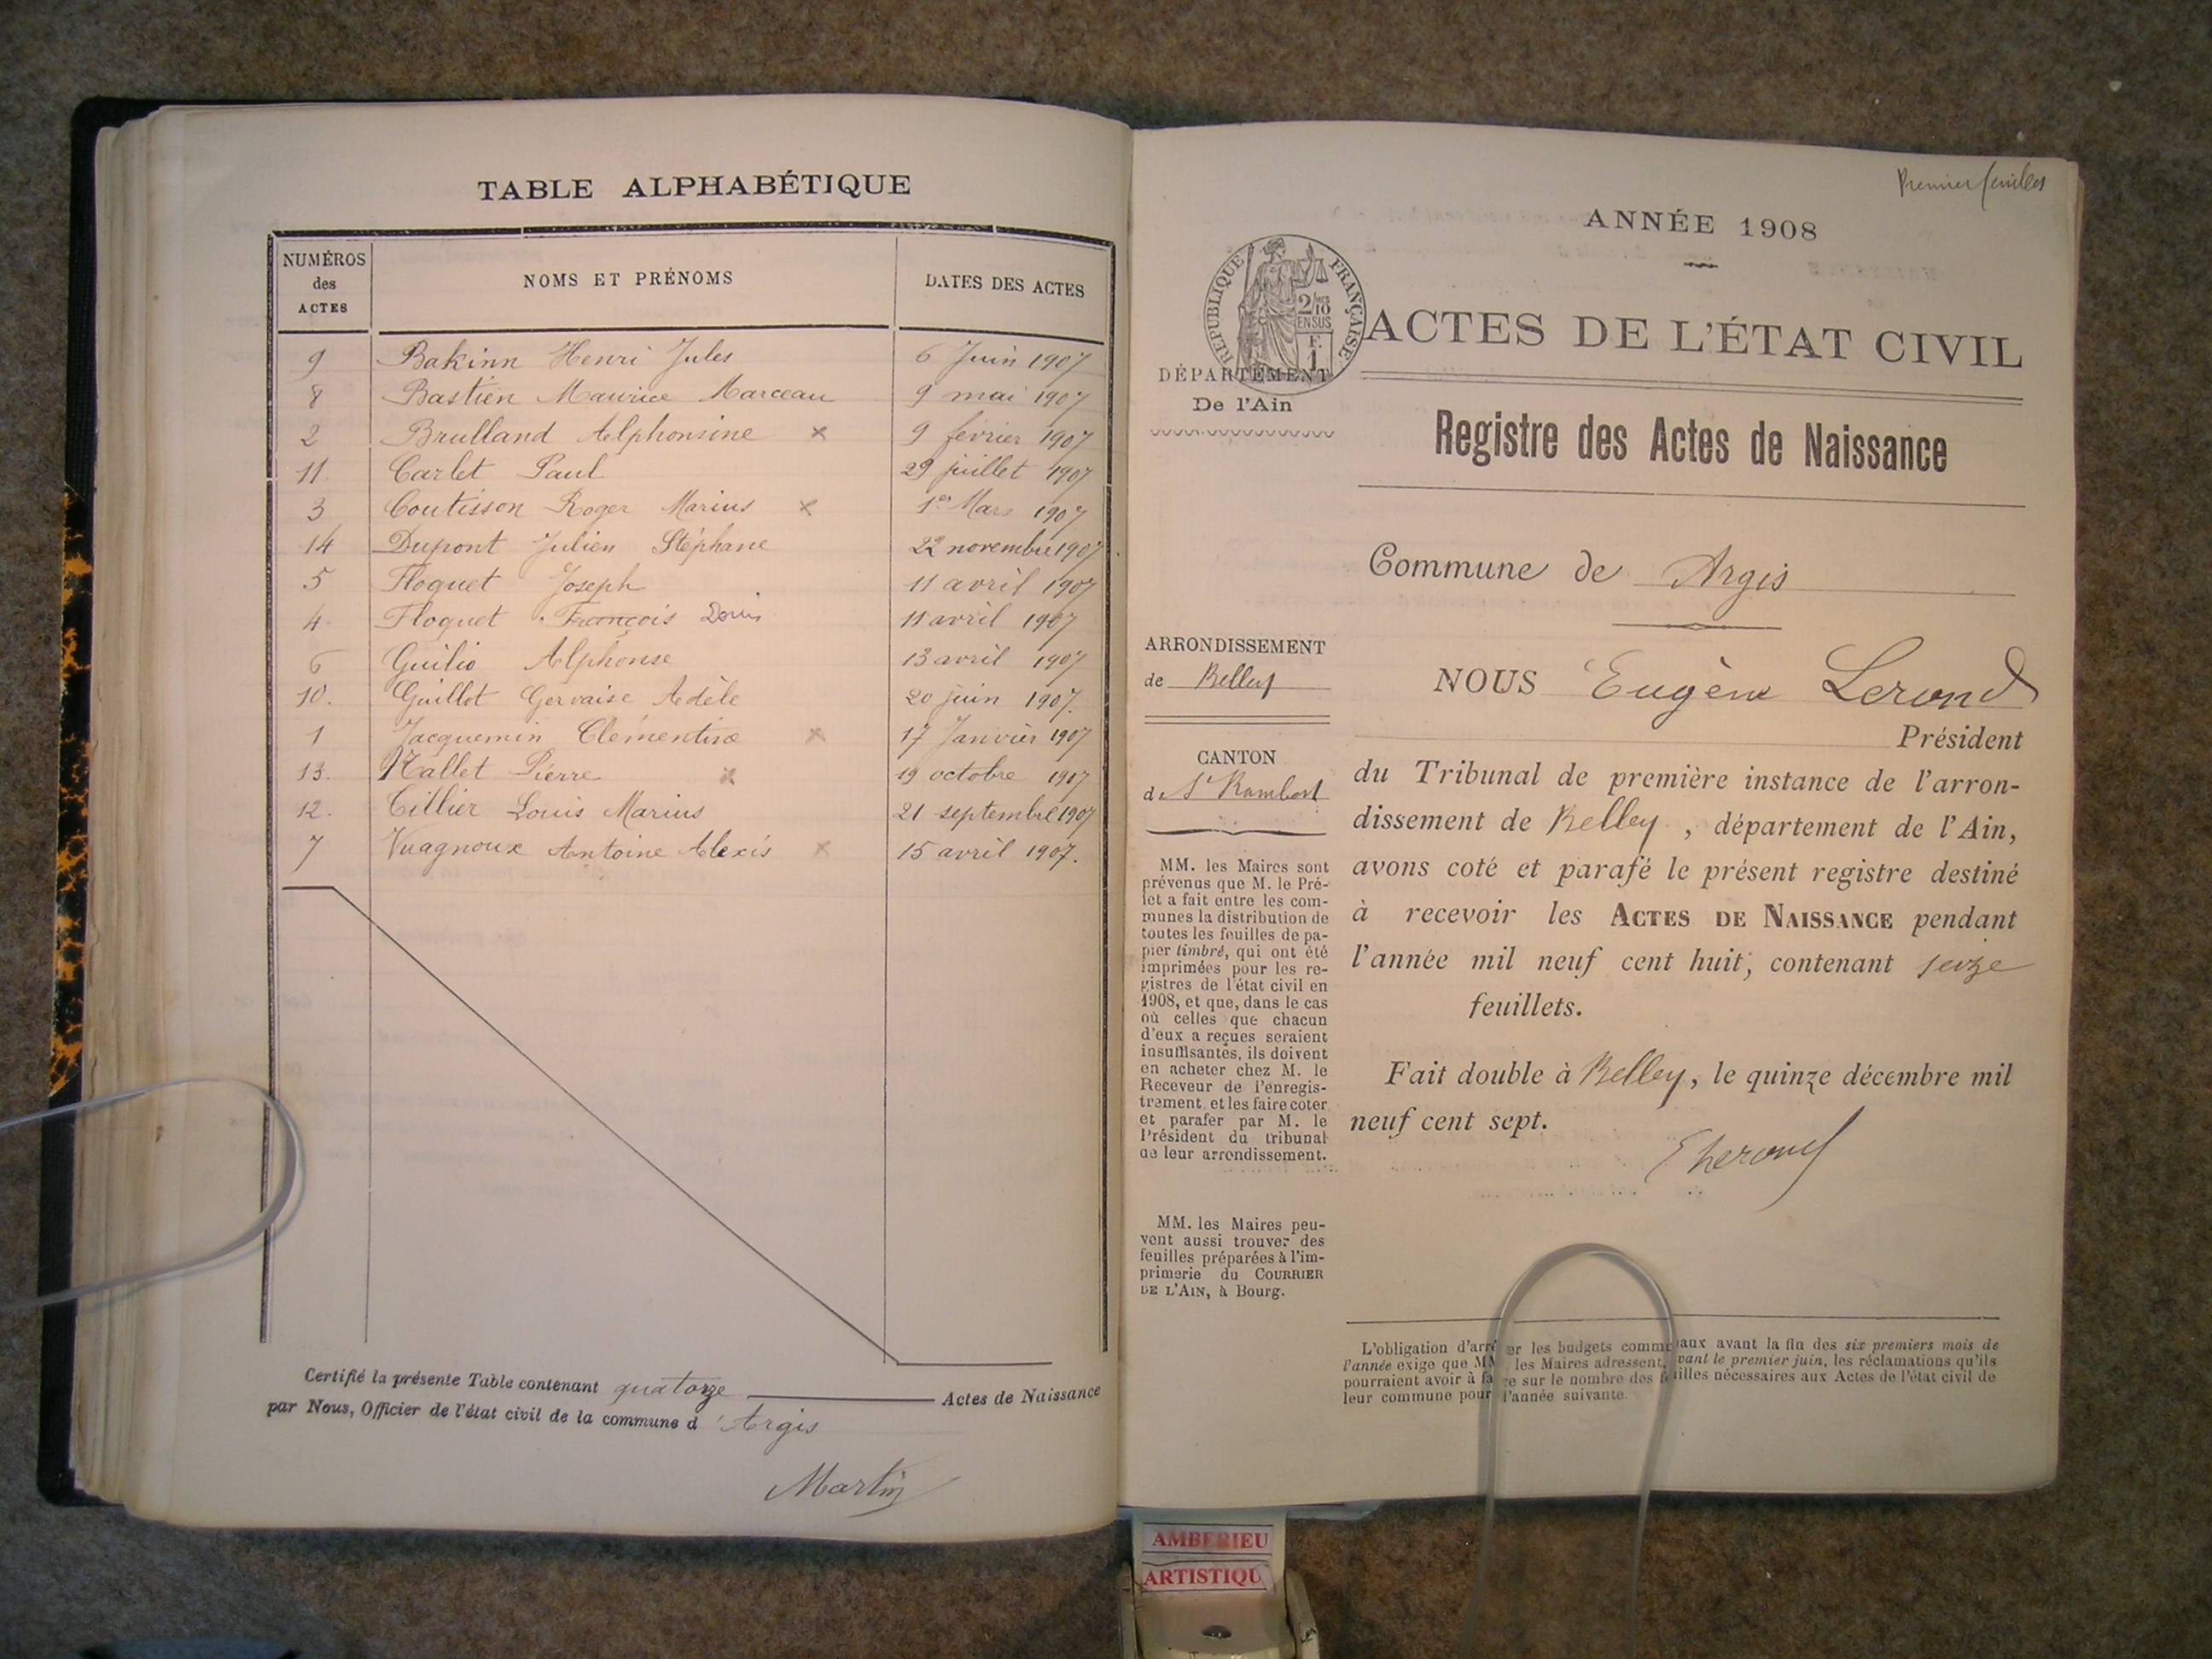 TABLE ALPHABÉTIQUE
NUMÉROS des ACTES NOMS ET PRÉNOMS DATES DES ACTES
9 Bakinn Henri Jules 6 Juin 1907
8 Bastien Maurice Marceau 9 mai 1907
2 Brulland Alphonsine x 9 février 1907
11 Carlet Paul 29 juillet 1907
3 Coutisson Roger Marius x 1er Mars 1907
14 Dupont Julien Stéphane 22 novembre 1907
5 Floquet Joseph 11 avril 1907
4 Floquet François 11 avril 1907
6 Guilio Alphonse 13 avril 1907
10. Guillot Gervaise Adèle 20 juin 1907.
1 Jacquemin Clémentine x 17 Janvier 1907
13. Pierre x 19 octobre 1907
12. Tillier Louis Marius 21 septembre 1907
7 Vuagnoux Antoine Alexis x 15 avril 1907.
Certifié la présente Table contenant quatorze Actes de Naissance
par Nous, Officier de l'état civil de la commune d'Argis
Martin
Premier feuillet
ANNÉE 1908
RÉPUBLIQUE FRANÇAISE
2/10 EN SUS
F. 1
ACTES DE L'ÉTAT CIVIL
DÉPARTEMENT
De l'Ain
Registre des Actes de Naissance
Commune de Argis
ARRONDISSEMENT
de Belley
CANTON
de St Rambert
MM. les Maires sont
prévenus que M. le Pré-
fet a fait entre les com-
munes la distribution de
toutes les feuilles de pa-
pier timbré, qui ont été
imprimées pour les re-
gistres de l'état civil en
1908, et que, dans le cas
où celles que chacun
d'eux a reçues seraient
insuffisantes, ils doivent
en acheter chez M. le
Receveur de l'enregis-
trement et les faire coter
et parafer par M. le
Président du tribunal
de leur arrondissement.
MM. les Maires peu-
vent aussi trouver des
feuilles préparées à l'im-
primerie du COURRIER
DE L'AIN, à Bourg.
NOUS Eugène Lerond
Président
du Tribunal de première instance de l'arron-
dissement de Belley, département de l'Ain,
avons coté et parafé le présent registre destiné
à recevoir les ACTES DE NAISSANCE pendant
l'année mil neuf cent huit, contenant seize
feuillets.
Fait double à Belley, le quinze décembre mil
neuf cent sept.
L'obligation d'arrêter les budgets communaux avant la fin des six premiers mois de
l'année exige que MM. les Maires adressent, avant le premier juin, les réclamations qu'ils
pourraient avoir à faire sur le nombre des feuilles nécessaires aux Actes de l'état civil de
leur commune pour l'année suivante.
AMBERIEU
ARTISTIQU